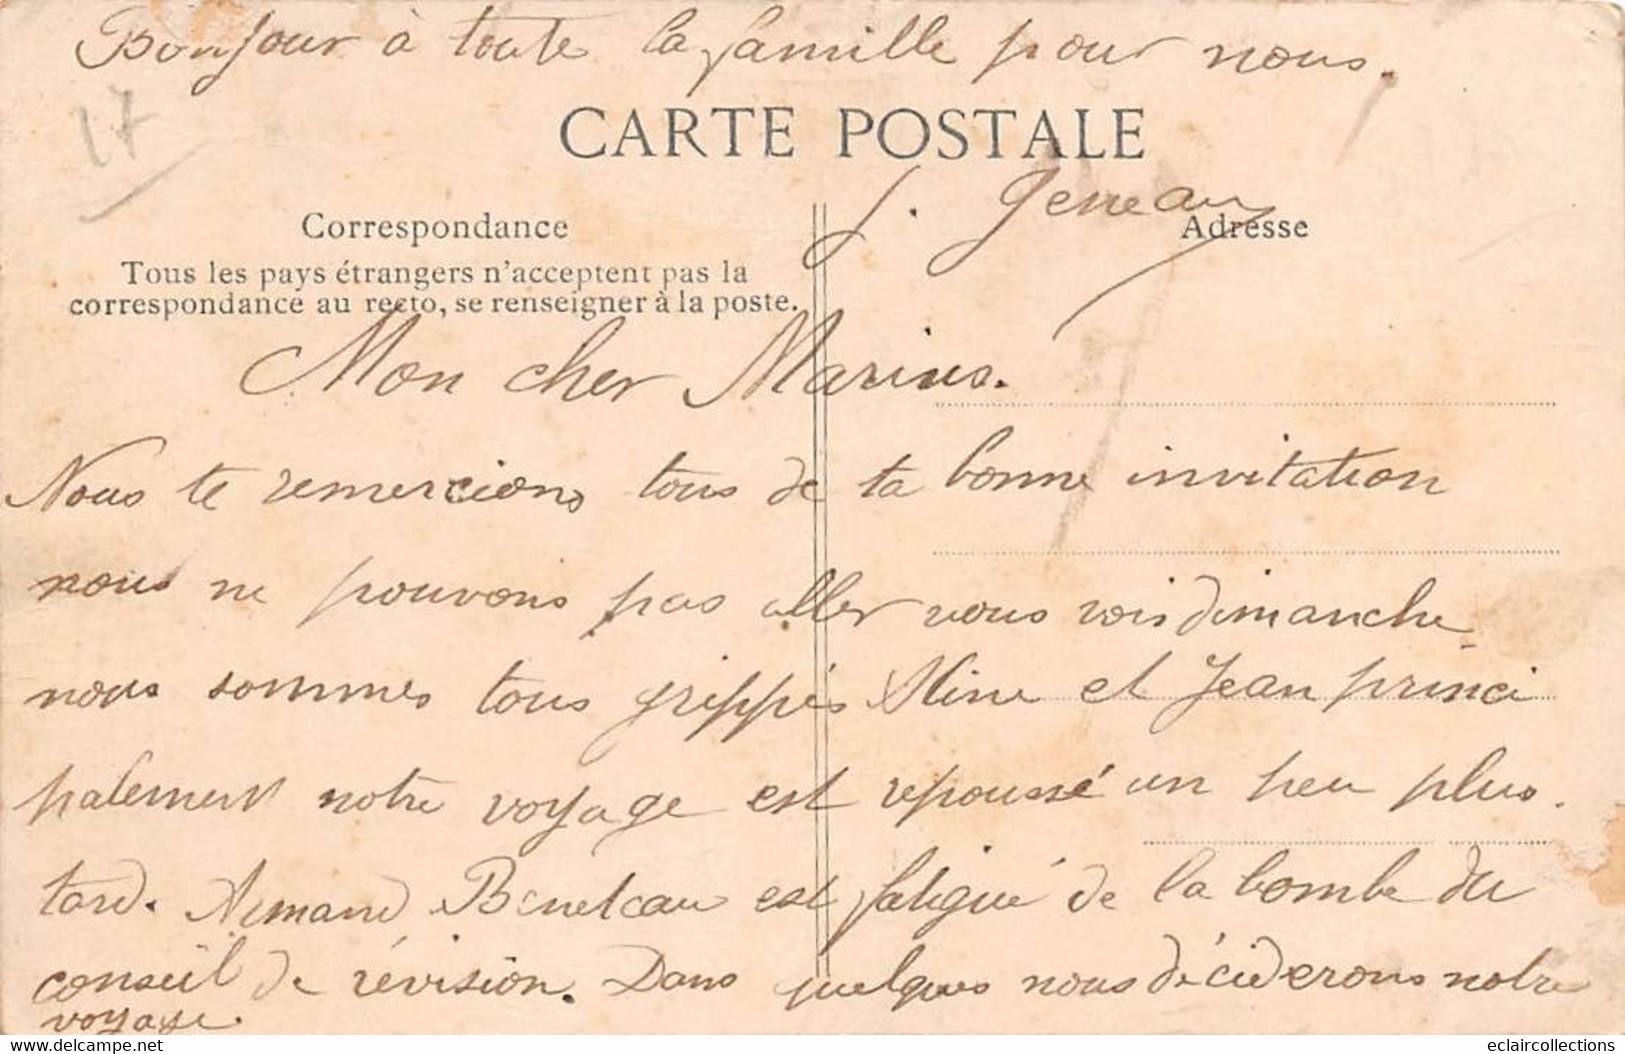 Bonjour à toute la famille pour nous.
17
CARTE POSTALE
J. Geneau
Correspondance
Adresse
Tous les pays étrangers n'acceptent pas la
correspondance au recto, se renseigner à la poste.
Mon cher Marius.
Nous te remercions tous de ta bonne invitation
nous ne pouvons pas aller vous vois dimanche
nous sommes tous grippés et Jean princi
palement notre voyage est repoussé un peu plus
tard. Armand Beneteau est fatigué de la bombe du
conseil de révision. Dans quelques nous déciderons notre
voyage.
www.delcampe.net
eclaircollections